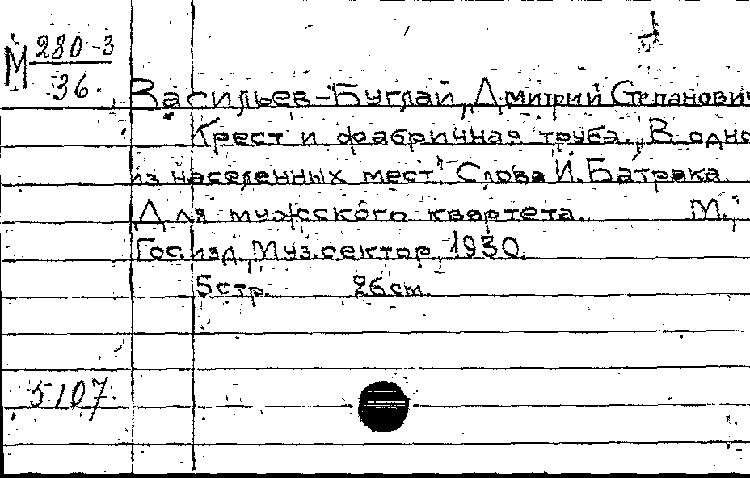 М 280-3
36.
Васильев-Буглай, Дмитрий Степанович
Крест и фабричная труба. "В одно
из населенных мест". Слова И. Батрака.
Для мужского квартета. М.,
Гос. изд. Муз. сектор, 1930.
5 стр. 26 см.
5107